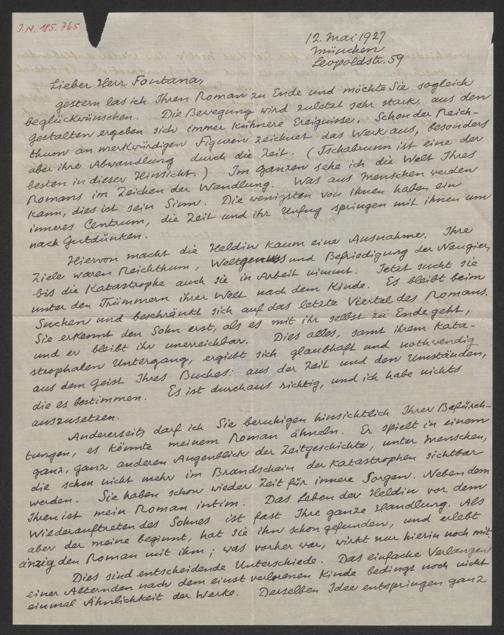 J.N. 185.765
12. Mai 1927
München
Leopoldstr. 59
Lieber Herr Fontana,
gestern las ich Ihren Roman zu Ende und möchte Sie sogleich
beglückwünschen. Die Bewegung wird zuletzt sehr stark, aus den
Gestalten ergeben sich immer kühnere Ereignisse. Schon der Reich-
thum an merkwürdigen Figuren zeichnet das Werk aus, besonders
aber ihre Abwandlung durch die Zeit. (Tschabrunn ist eine der
besten in dieser Hinsicht.) Im Ganzen sehe ich die Welt Ihres
Romans im Zeichen der Wandlung. Was aus Menschen werden
kann, dies ist sein Sinn. Die wenigsten von Ihnen haben ein
inneres Centrum, die Zeit und ihr Unfug springen mit ihnen um
nach Gutdünken.
Hiervon macht die Heldin kaum eine Ausnahme. Ihre
Ziele waren Reichthum, Weltgenuss und Befriedigung der Neugier,
bis die Katastrophe auch sie in Arbeit nimmt. Jetzt sucht sie
unter den Trümmern ihrer Welt nach dem Kinde. Es bleibt beim
Suchen und beschränkt sich auf das letzte Viertel des Romans.
Sie erkennt den Sohn erst, als es mit ihr selbst zu Ende geht,
und er bleibt ihr unerreichbar. Dies alles, samt ihrem kata-
strophalen Untergang, ergiebt sich glaubhaft und nothwendig
aus dem Geist Ihres Buches: aus der Zeit und den Umständen,
die es bestimmen. Es ist durchaus richtig, und ich habe nichts
auszusetzen.
Andererseits darf ich Sie beruhigen hinsichtlich Ihrer Befürch-
tungen, es könnte meinem Roman ähneln. Er spielt in einem
ganz, ganz anderen Augenblick der Zeitgeschichte, unter Menschen,
die schon nicht mehr im Brandschein der Katastrophen sichtbar
werden. Sie haben schon wieder Zeit für innere Sorgen. Neben dem
Ihren ist mein Roman intim. Das Leben der Heldin vor dem
Wiederauftreten des Sohnes ist fast Ihre ganze Handlung. Als
aber der meine beginnt, hat sie ihn schon gefunden, und erlebt
einzig den Roman mit ihm; was vorher war, wirkt nur hierin noch mit.
Dies sind entscheidende Unterschiede. Das einfache Verlangen
einer Alternden nach dem einst verlorenen Kinde bedingt noch nicht
einmal Ähnlichkeit der Werke. Derselben Idee entspringen ganz